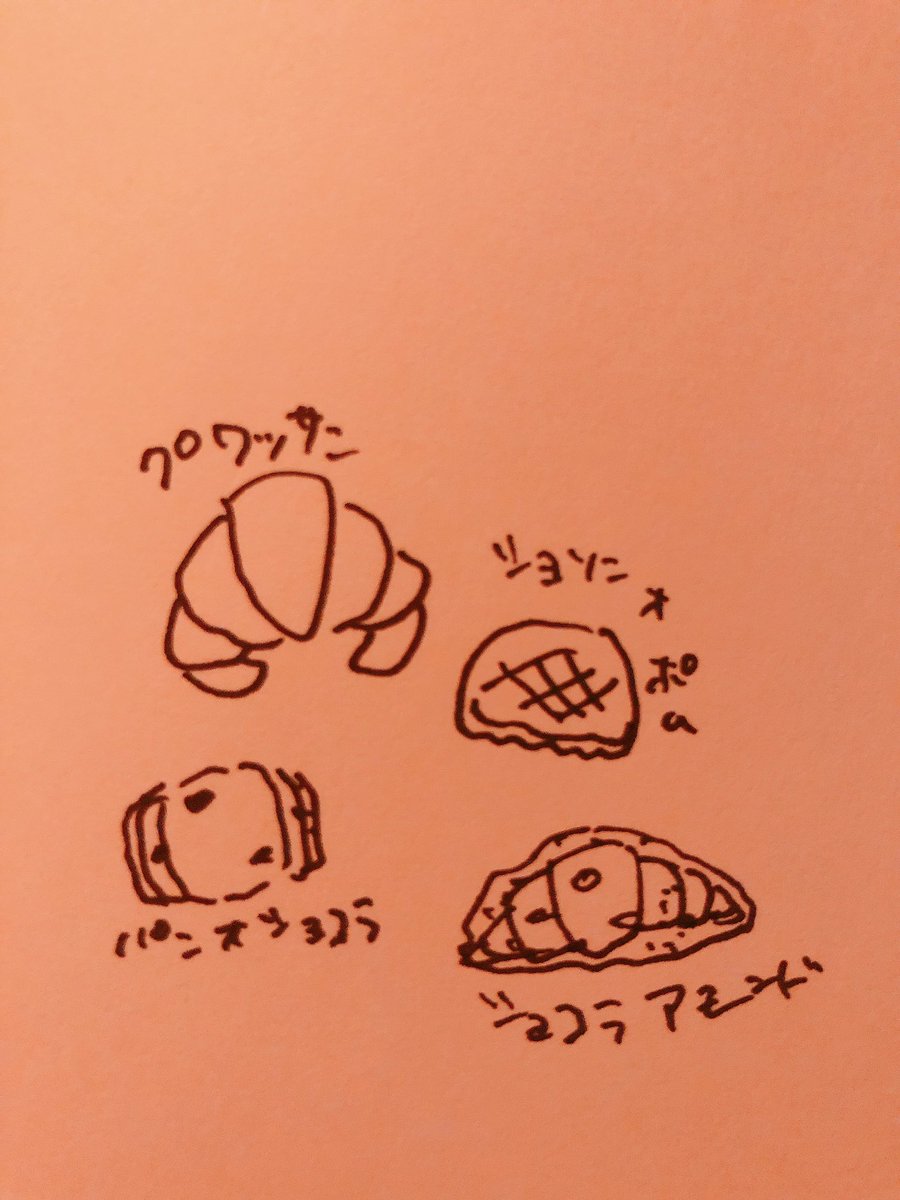 クロワッサン
ショソン
オ
ポ
ム
パンオショコラ
ショコラ アマンド